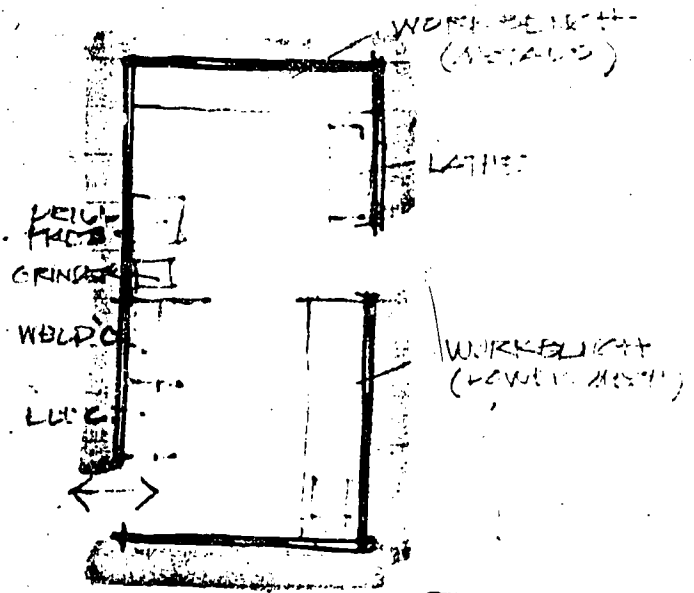 WORKBENCH
(METALS)
LATHE
DRILL
PRESS
GRINDER
WELD'G
ELEC.
WORKBENCH